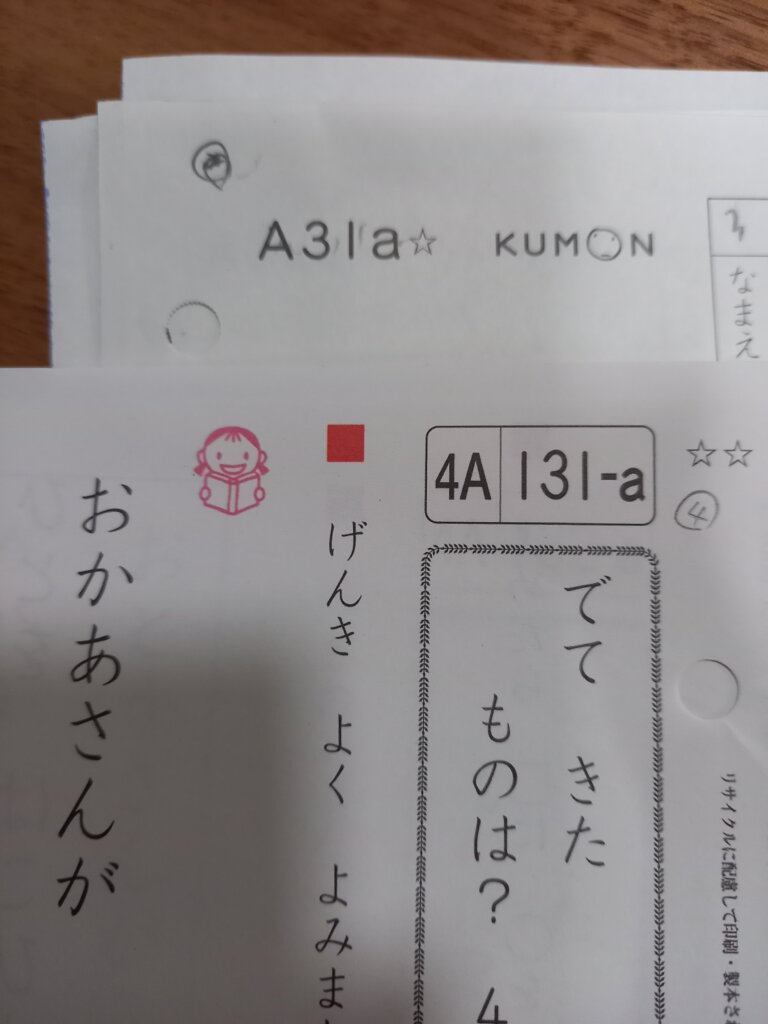 A31a☆ KUMON
なまえ
☆☆
④
4A 131-a
リサイクルに配慮して印刷・製本さ
でて きた
ものは? 4
げんき よく よみま
おかあさんが